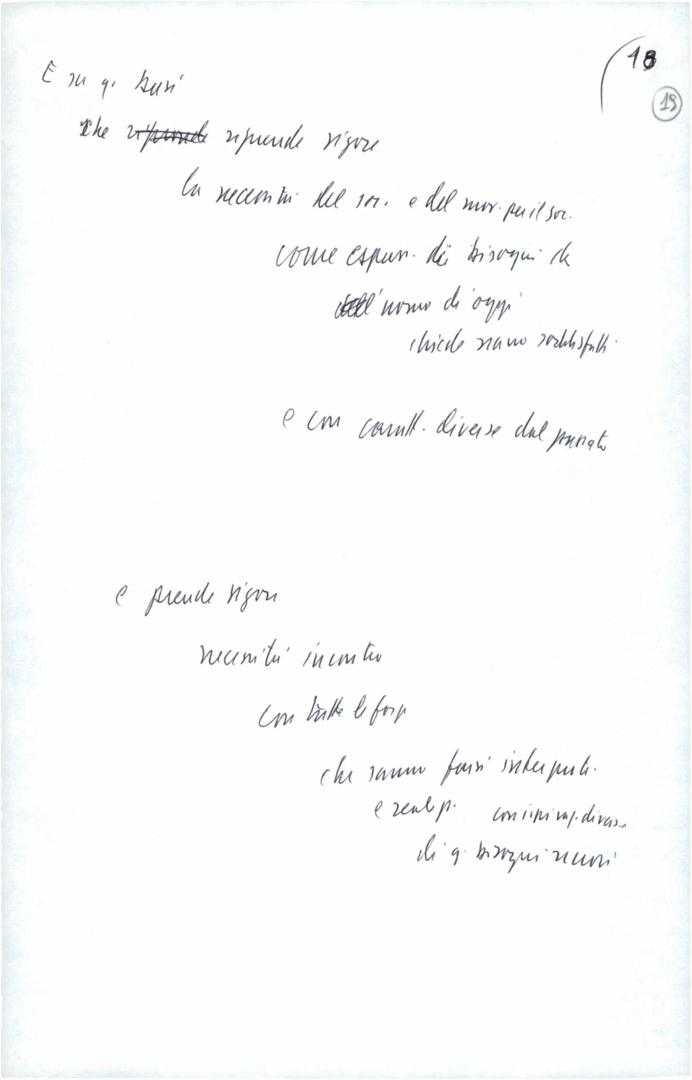 18
19
E su q. basi
che riprende riprende vigore
la necessità del soc. e del mov. per il soc.
come espress. dei bisogni che
dell'uomo di oggi
chiede siano soddisfatti.
e con caratt. diverse dal passato
e prende vigore
necessità incontro
con tutte le forze
che sanno farsi interpreti.
e con ispiraz. diverse
di q. bisogni nuovi